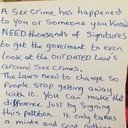 A Sex crime, has happened
to You or someone you know
NEED thousands of Signitures
to get the goverment to even
Look at the OUTDATED Laws
around Sex crimes.
The Laws need to change so
People stop getting away
with it. You can make that
difference Just by Signing
this petition. It only takes
a minute and cost nothing